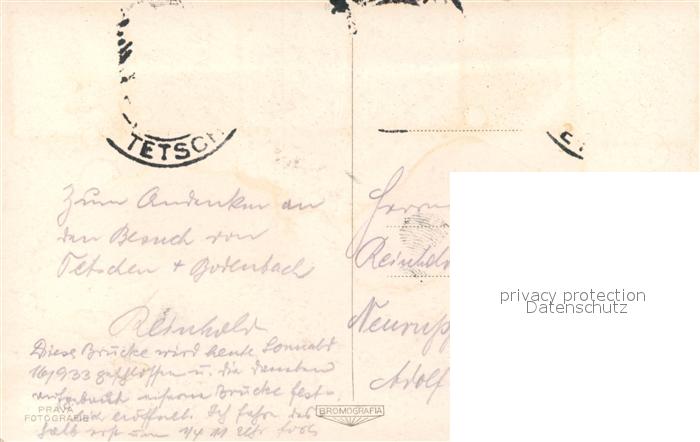 TETSCH
Zum Andenken an
den Besuch von
Tetschen + Bodenbach
Reinhold
Diese Brücke wird heute Sonnabd
16/933 geschlossen u. die daneben
Brücke fest-
eröffnet. Ich fahre des-
halb erst um 1/4 11 Uhr fort
PRAVÁ
FOTOGRAFIE
BROMOGRAFIA
Herrn
Reinhold
Neurupp
Adolf
privacy protection
Datenschutz